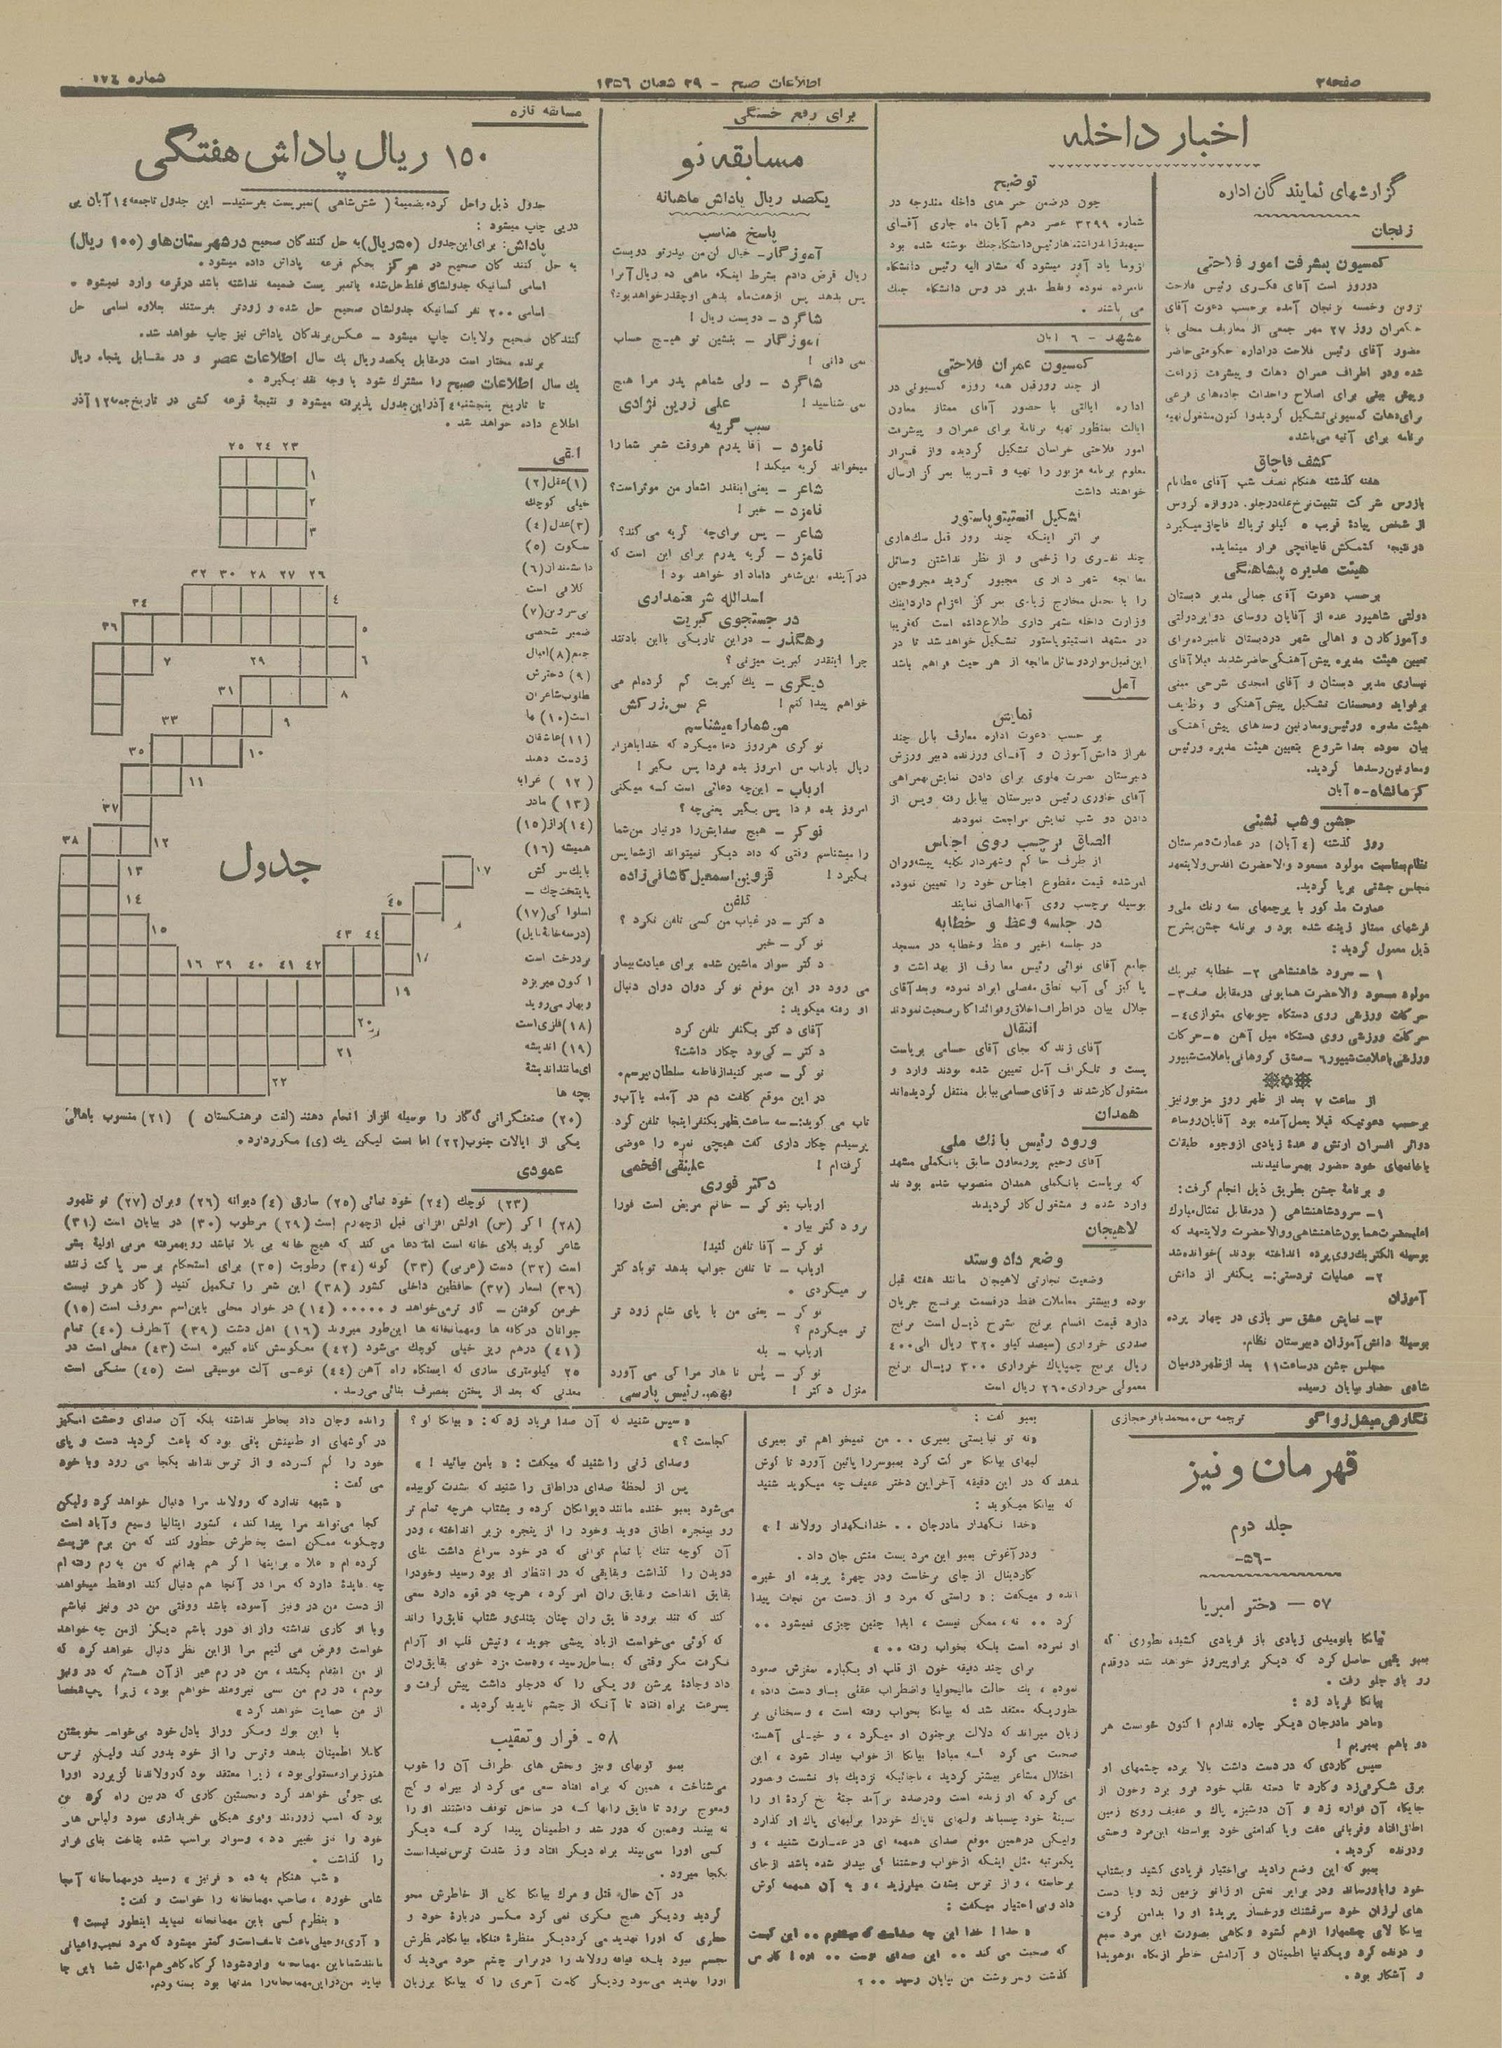 صفحه۲
اطلاعات صبح - ۲۹ شعبان ۱۳۵۶
شماره ۱۷۴
اخبار داخله
گزارشهای نمایندگان اداره
زنجان
کمسیون پیشرفت امور فلاحتی
دوروز است آقای فکری رئیس فلاحت
قزوین وخمسه بزنجان آمده برحسب دعوت آقای
حکمران روز ۲۷ مهر جمعی از معاریف محلی با
حضور آقای رئیس فلاحت دراداره حکومتی حاضر
شده ودر اطراف عمران دهات و پیشرفت زراعت
وپیش بینی برای اصلاح واحداث جاده‌های فرعی
برای‌دهات کمسیونی‌تشکیل گردیدوا کنون‌مشغول‌تهیه
برنامه برای آتیه می‌باشد.
کشف قاچاق
هفته گذشته هنگام نصف شب آقای عطا‌نام
بازرس شرکت تثبیت نرخ غله درجلو دروازه گروس
از شخص پیاده قریب ۵ کیلو تریاک قاچاق‌میگیرد
درنتیجه کشمکش قاچاقچی فرار مینماید.
هیئت مدیره پیشاهنگی
برحسب دعوت آقای جمالی مدیر دبستان
دولتی شاهپور عده از آقایان روسای دوایردولتی
وآموزگاران و اهالی شهر دردبستان نامبرده‌برای
تعیین هیئت مدیره پیش‌آهنگی حاضرشدند قبلا آقای
نیساری مدیر دبستان و آقای امجدی شرحی مبنی
برفواید ومحسنات تشکیل پیش‌آهنگی و وظایف
هیئت مدیره ورئیس‌ومعاونین رسدهای پیش‌آهنگی
بیان نموده بعدا شروع بتعیین هیئت مدیره ورئیس
ومعاونین‌رسدها گردید.
کرمانشاه-۵ آبان
جشن وشب نشینی
روز گذشته (۴ آبان) در عمارت دبیرستان
نظام‌بمناسبت مولود مسعود والاحضرت اقدس‌ولایتعهد
مجلس جشنی برپا گردید.
عمارت مذکور با پرچمهای سه رنگ ملی‌و
فرشهای ممتاز زینت شده بود و برنامه جشن‌بشرح
ذیل معمول گردید:
۱ - سرود شاهنشاهی ۲- خطابه تبریک
مولود مسعود والاحضرت همایونی درمقابل صف۳-
حرکات ورزشی روی دستگاه چوبهای متوازی۴-
حرکات ورزشی روی دستگاه میل آهن ۵-حرکات
ورزشی‌باعلامت‌شیپور۶ -مشق گروهانی‌باعلامت‌شیپور
از ساعت ۷ بعد از ظهر روز مزبورنیز
برحسب دعوتیکه قبلا بعمل‌آمده بود آقایان‌روساء
دوائر افسران ارتش و عدهٔ زیادی ازوجوه طبقات
باخانمهای خود حضور بهمرسانیدند.
و برنامهٔ جشن بطریق ذیل انجام گرفت:
۱-سرودشاهنشاهی ( درمقابل تمثال‌مبارک
اعلیحضرت‌همایون‌شاهنشاهی‌ووالاحضرت ولایتعهد که
بوسیله الکتریک‌روی‌پرده انداخته بودند )خوانده‌شد
۲- عملیات تردستی:- یکنفر از دانش
آموزان
۳- نمایش عشق سر بازی در چهار پرده
بوسیلهٔ دانش‌آموزان دبیرستان نظام.
مجلس جشن درساعت۱۱ بعد ازظهردرمیان
شادی حضار بپایان رسید.
توضیح
چون درضمن خبر های داخله مندرجه در
شماره ۳۲۹۹ عصر دهم آبان ماه جاری آقای
نوشته شده بود
لزوما یاد آور میشود که مشار الیه رئیس دانشگاه
نامبرده نبوده وفقط مدیر دروس دانشگاه جنگ
می باشند .
مشهد - ۶ آبان
کمسیون عمران فلاحتی
از چند روزقبل همه روزه کمسیونی در
اداره ایالتی با حضور آقای ممتاز معاون
ایالت بمنظور تهیه برنامه برای عمران و پیشرفت
امور فلاحتی خراسان تشکیل گردیده واز قرار
معلوم برنامه مزبور را تهیه و قریبا بمرکز ارسال
خواهند داشت
تشکیل انستیتوپاستور
بر اثر اینکه چند روز قبل سک‌هاری
چند نفری را زخمی و از نظر نداشتن وسائل
معالجه شهرداری مجبور گردید مجروحین
را با تحمل مخارج زیادی بمرکز اعزام دارداینک
وزارت داخله بشهرداری اطلاع‌داده است که‌قریبا
در مشهد انستیتوپاستور تشکیل خواهد شد تا در
این‌قبیل موارد وسائل معالجه از هر حیث فراهم باشد
آمل
نمایش
بر حسب دعوت اداره معارف بابل چند
نفراز دانش‌آموزان و آقای ورزنده دبیر ورزش
دبیرستان پهلوی برای دادن نمایش‌بهمراهی
آقای خاوری رئیس دبیرستان ببابل رفته وپس از
دادن دو شب نمایش مراجعت نمودند
الصاق برچسب روی اجناس
از طرف حاکم وشهردار بکلیه پیشه‌وران
امرشده قیمت مقطوع اجناس خود را تعیین نموده
بوسیله برچسب روی آنهاالصاق نمایند
در جلسه وعظ و خطابه
در جلسه اخیر وعظ وخطابه در مسجد
جامع آقای نوائی رئیس معارف از بهداشت و
پاکیزگی آب نطق مفصلی ایراد نموده وبعدآقای
جلال بیان دراطراف‌اخلاق‌وفوائدآن‌صحبت‌نمودند
انتقال
آقای زند که بجای آقای حسامی بریاست
پست و تلگراف آمل تعیین شده بودند وارد و
مشغول کارشدند وآقای‌حسامی‌ببابل منتقل گردیده‌اند
همدان
ورود رئیس بانک ملی
آقای رحیم پورمعاون سابق بانک‌ملی مشهد
که بریاست بانک‌ملی همدان منصوب شده بودند
وارد شده و مشغول‌کار گردیدند
لاهیجان
وضع داد وستد
وضعیت تجارتی لاهیجان مانند هفته قبل
بوده وبیشتر معاملات فقط درقسمت برنج جریان
دارد قیمت اقسام برنج بشرح ذیل است برنج
صدری خرواری (سیصد کیلو ۳۲۰ ریال الی۴۰۰
ریال برنج چمپاپاک خرواری ۳۰۰ ریال برنج
معمولی خرواری ۲۶۰ ریال است
برای رفع خستگی
مسابقه نو
یکصد ریال پاداش ماهیانه
پاسخ مناسب
آموزگار- خیال کن‌من بپدرتو دویست
ریال قرض دادم بشرط اینکه ماهی ده ریال آنرا
پس بدهد پس ازهفت‌ماه بدهی اوچقدرخواهدبود؟
شاگرد - دویست ریال !
آموزگار - بنشین تو هیچ حساب
نمی دانی !
شاگرد - ولی شماهم پدر مرا هیچ
نمی شناسید !
علی زرین نژادی
سبب گریه
نامزد - آقا پدرم هروقت شعر شما را
میخواند گریه میکند!
شاعر - یعنی‌اینقدر اشعار من موثراست؟
نامزد - خیر !
شاعر - پس برای‌چه گریه می کند؟
نامزد - گریه پدرم برای این است که
درآینده این‌شاعر داماد او خواهد بود!
اسدالله شریعتمداری
در جستجوی کبریت
رهگذر - دراین تاریکی بااین بادتند
چرا اینقدر کبریت میزنی ؟
دیگری - یک کبریت گم کرده‌ام می
خواهم پیدا کنم !
ع س.زرکش
من شمارا میشناسم
نوکری هرروز دعا میکرد که خدایاهزار
ریال بارباب من امروز بده فردا پس بگیر !
ارباب - این‌چه دعائی است که میکنی
امروز بده فردا پس بگیر یعنی‌چه ؟
نوکر - هیچ صدایش‌را درنیار من‌شما
را میشناسم وقتی که داد دیگر نمیتواند ازشماپس
بگیرد !
قزوین‌اسمعیل‌کاشانی‌زاده
تلفن
دکتر - در غیاب من کسی تلفن نکرد ؟
نوکر - خیر
دکتر سوار ماشین شده برای عیادت‌بیمار
می رود در این موقع نوکر دوان دوان دنبال
او رفته میگوید:
آقای دکتر یکنفر تلفن کرد
دکتر - کی‌بود چکار داشت؟
نوکر - صبر کنیدازفاطمه سلطان‌بپرسم.
در این موقع کلفت دم در آمده باآب‌و
تاب می گوید:- سه ساعت‌بظهریکنفراینجا تلفن کرد
پرسیدم چکار داری گفت هیچی نمره را عوضی
گرفته‌ام !
علینقی افخمی
دکتر فوری
ارباب بنوکر - خانم مریض است فورا
برو دکتر بیار .
نوکر - آقا تلفن کنید!
ارباب - تا تلفن جواب بدهد توبادکتر
بر میگردی .
نوکر - یعنی من با پای شلم زود تر
تر میگردم ؟
ارباب - بله
نوکر - پس ناهار مرا کی می آورد
منزل دکتر !
بهبهد رئیس پارسی
مسابقه تازه
۱۵۰ ریال پاداش هفتگی
جدول ذیل راحل کرده بضمیمهٔ ( شش‌شاهی )تمبرپست بفرستید- این جدول تاجمعه ۱۴ آبان پی
درپی چاپ میشود :
پاداش: برای‌این‌جدول (۵۰ریال)به حل کنندگان صحیح درشهرستان‌هاو (۱۰۰ ریال)
به حل کنندگان صحیح در مرکز بحکم قرعه پاداش داده میشود .
اسامی کسانیکه جدولشان غلط‌حل‌شده یاتمبر پست ضمیمه نداشته باشد درقرعه وارد نمیشود .
اسامی ۲۰۰ نفر کسانیکه جدولشان صحیح حل شده و زودتر بفرستند بعلاوه اسامی حل
کنندگان صحیح ولایات چاپ میشود - عکس‌برندگان پاداش نیز چاپ خواهد شد.
برنده مختار است درمقابل یکصد ریال یک سال اطلاعات عصر و در مقابل پنجاه ریال
یک سال اطلاعات صبح را مشترک شود یا وجه نقد بگیرد .
تا تاریخ پنجشنبه ۴ آذراین‌جدول پذیرفته میشود و نتیجهٔ قرعه کشی در تاریخ‌جمعه۱۲آذر
اطلاع داده خواهد شد .
افقی
(۱) عقل(۲)
خیلی کوچک
(۳)عدل(۴)
سکوت (۵)
دانشمندان(۶)
کلافی است
بی‌سروبن(۷)
ضمیر شخصی
جمع(۸)امیال
(۹) دخترش
مطلوب‌شاعران
است(۱۰) ما
(۱۱)عاشقان
زدست دهند
(۱۲) خرابه
(۱۳) مادر
(۱۴)راز(۱۵)
همیشه (۱۶)
بابک‌سرکش
پایتخت‌چک-
اسلواکی(۱۷)
(درمه‌خانهٔ‌مایل)
بردرخت است
اکنون میریزد
وبهارمی‌روید
(۱۸)فلزی‌است
(۱۹) اندیشه
ای‌ماننداندیشهٔ
بچه ها
(۲۰) صنعتگرانی که‌کار را بوسیله افزار انجام دهند (لغت فرهنگستان ) (۲۱) منسوب باهالی
یکی از ایالات جنوب(۲۲) اما است لیکن یک (ی) مکرردارد .
۲۳ ۲۴ ۲۵
۱
۲
۳
۲۶ ۲۷ ۲۸ ۳۰ ۳۲
۳۴ ۴
۳۶ ۵
۷ ۲۹ ۶
۳۱ ۸
۳۳ ۹
۳۵ ۱۰
۱۱
۳۷
۳۸ ۱۲
جدول
۱۳ ۱۷
۱۴ ۴۵
۱۵ ۴۳ ۴۴
۱۶ ۳۹ ۴۰ ۴۱ ۴۲ ۱۸
۱۹
۲۰
۲۱
۲۲
عمودی
(۲۳) کوچک (۲۴) خود نمائی (۲۵) سارق (۴) دیوانه (۲۶) ویران (۲۷) نو ظهور
(۲۸) اگر (س) اولش افزائی فیل ازچهرم است (۲۹) مرطوب (۳۰) در بیابان است (۳۱)
شاعر گوید بلای خانه است اما دعا می کند که هیچ خانه بی بلا نباشد رویهمرفته مربی اولیهٔ بشر
است (۳۲) دست (عربی) (۳۳) گونه (۳۴) رطوبت (۳۵) برای استحکام بر سر پاکت زنند
(۳۶) اسعار (۳۷) حافظین داخلی کشور (۳۸) این شعر را تکمیل کنید ( کار هربز نیست
خرمن کوفتن - گاو نرمی‌خواهد و ...... (۱۴) در خوار محلی باین‌اسم معروف است (۱۵)
جوانان درکافه ها ومهمانخانه ها این‌طور میروند (۱۶) اهل دشت (۳۹) آنطرف (۴۰) تمام
(۴۱) درهم ریز خیلی کوچک می‌شود (۴۲) معکوسش گناه کبیره است (۴۳) محلی‌است در
۲۵ کیلومتری ساری که ایستگاه راه آهن (۴۴) نوعی آلت موسیقی است (۴۵) سنگی است
معدنی که بعد از پختن بمصرف بنائی می‌رسد .
نگارش میشل زواگو
ترجمه س . محمدباقرحجازی
قهرمان ونیز
جلد دوم
-۵۶-
۵۷ - دختر امپریا
بیانکا بانومیدی زیادی باز فریادی کشیده بطوری که
بمبو یقین حاصل کرد که دیگر براوپیروز خواهد شد دوقدم
رو باو جلو رفت .
بیانکا فریاد زد :
«مادر مادرجان دیگر چاره ندارم اکنون خوبست هر
دو باهم بمیریم !
سپس کاردی که در دست داشت بالا برده چشمهای او
برق شگرفی‌زد وکارد تا دسته بقلب خود فرو برد وخون از
جایگاه آن فواره زد و آن دوشیزه پاک و عفیف روی زمین
اطاق‌افتاد وقربانی عفت وپاکدامنی خود بواسطه این‌مرد وحشی
ودرنده گردید .
بمبو که این وضع رادید بی‌اختیار فریادی کشید وبشتاب
خود راباورساند ودر برابر نعش او زانو بزمین زد وبا دست
های لرزان خود سرقشنگ ورخسار پریدهٔ او را بدامن گرفت
بیانکا لای چشمهارا ازهم گشود ونگاهی بصورت این مرد سبع
و درنده کرد ویکدنیا اطمینان و آرامش خاطر ازنگاه اوهویدا
و آشکار بود .
بمبو گفت :
«نه تو نبایستی بمیری . . من نمیخواهم تو بمیری
لبهای بیانکا حرکت کرد بمبوسررا پائین آورد تا گوش
بدهد که در این دقیقه آخراین دختر عفیف چه میگوید شنید
که بیانکا میگوید :
«خدا نگهدار مادرجان . . خدانگهدار رولاند ! »
ودرآغوش بمبو این مرد پست منش جان داد .
کاردینال از جای برخاست ودر چهرهٔ پریده او خیره
مانده و میگفت : « راستی که مرد و از دست من نجات پیدا
کرد . . نه ، ممکن نیست ، ابدا چنین چیزی نمیشود . .
او نمرده است بلکه بخواب رفته . . »
برای چند دقیقه خون از قلب او یکباره بمغزش صعود
نموده ، یک حالت مالیخولیا واضطراب عقلی باو دست داده ،
بطوریکه معتقد شد که بیانکا بخواب رفته است ، وسخنانی بر
زبان میراند که دلالت برجنون او میکرد ، و خیلی آهسته
صحبت می کرد که مبادا بیانکا از خواب بیدار شود ، این
اختلال مشاعر بیشتر گردید ، تاجائیکه نزدیک باو نشست وتصور
می کرد که او زنده است ودرصدد برآمد جثهٔ یخ کردهٔ او را
بسینهٔ خود چسباند ولبهای ناپاک خودرا برلبهای پاک او گذارد
ولیکن درهمین موقع صدای همهمه ای در عمارت شنید ، و
یکمرتبه مثل اینکه ازخواب وحشتناکی بیدار شده باشد ازجای
برخاسته ، و از ترس بشدت میلرزید ، و به آن همهمه گوش
داد وبی اختیار میگفت :
« خدا ! خدا این چه صداست که میشنوم . . این کیست
که صحبت می کند . . این صدای اوست . .
گذشت وسرنوشت من بپایان رسید . . ؟
« سپس شنید که آن صدا فریاد زد که : « بیانکا کو؟
کجاست ؟ »
وصدای زنی را شنید که میگفت : « بامن بیائید ! »
پس از لحظهٔ صدای دراطاق را شنید که بشدت کوبیده
می‌شود بمبو خنده مانند دیوانگان کرده و بشتاب هرچه تمام تر
رو بپنجره اطاق دوید وخود را از پنجره بزیر انداخته ، ودر
آن کوچه تنک با تمام توانی که در خود سراغ داشت بنای
دویدن را گذاشت وبقایقی که در انتظار او بود رسید وخودرا
بقایق انداخت وبقایق ران امر کرد ، هرچه در قوه دارد سعی
کند که تند برود قایق ران چنان بتندی‌و شتاب قایق‌را راند
که گوئی می‌خواست ازباد پیشی جوید ، وتپش قلب او آرام
نگرفت مگر وقتی که بساحل‌رسید ، ودست مزد خوبی بقایق‌ران
داد وجادهٔ پرشن وریگی را که درجلو داشت پیش گرفت و
بسرعت براه افتاد تا آنکه از چشم ناپدید گردید .
۵۸ - فرار وتعقیب
بمبو کویهای ونیز وبخش های طراف آن را خوب
می‌شناخت ، همین که براه افتاد سعی می کرد از بیراه و کج
ومعوج برود تا قایق رانها که در ساحل توقف داشتند او را
نه بینند وهمین که دور شد و اطمینان پیدا کرد که دیگر
کسی اورا نمی‌بیند براه دیگر افتاد وز شدت ترس‌نمیدانست
بکجا میرود .
در آن حال، قتل و مرک بیانکا بکلی از خاطرش محو
گردید ودیگر هیچ فکری نمی کرد مگر دربارهٔ خود و
خطری که اورا تهدید می کرددیگر منظرهٔ هلاکت بیانکادرنظرش
مجسم نبود بلکه قیافه رولاند را دربرابر چشم خود می‌دید که
اورا تهدید می‌نمود ودیگر کلمات آخری را که بیانکا برزبان
رانده وجان داد بخاطر نداشته بلکه آن صدای وحشت انگیز
در گوشهای او طنینش باقی بود که باعث گردید دست و پای
خود را گم کرده و از ترس نداند بکجا می رود وبا خود
می گفت :
« شبهه ندارد که رولاند مرا دنبال خواهد کرد ولیکن
کجا می‌تواند مرا پیدا کند ، کشور ایتالیا وسیع وآباد است
وچگونه ممکن است بخاطرش خطور کند که من برم عزیمت
کرده ام علاوه براینها اگر هم بدانم که من به‌رم رفته‌ام
چه فایدهٔ دارد که مرا در آنجا هم دنبال کند اوفقط میخواهد
از دست من در ونیز آسوده باشد ووقتی من در ونیز نباشم
وبا او کاری نداشته واز او دور باشم دیگر ازمن چه خواهد
خواست وفرض می کنیم مرا ازاین نظر دنبال خواهد کرد که
از من انتقام بکشد ، من در رم غیر از آن هستم که در ونیز
بودم ، در رم من بسی نیرومند خواهم بود ، زیرا پاپ‌شخصا
از من حمایت خواهد کرد»
با این نوک وفکر وراز بادل خود می‌خواست خویشتن
کاملا اطمینان بدهد وترس را از خود بدور کند ولیکن ترس
هنوز براومستولی‌بود ، زیرا معتقد بود که رولاند ناگزیررد اورا
پی جوئی خواهد کرد ونخستین کاری که دربین راه کرد این
بود که اسب زورمند وقوی هیکلی خریداری نمود ولباس های
خود را نیز تغییر داد ، وسوار براسب شده بتاخت بنای فرار
را گذاشت .
« شب هنگام به ده « فرنیز » رسید درمهمانخانه آنجا
شامی خورد ، صاحب مهمانخانه را خواست و گفت :
« بنظرم کسی باین مهمانخانه نمیاید اینطور نیست ؟
« آری،وخیلی‌باعث تاسف‌است‌و کمتر میشود که مرد نجیب‌واعیانی
مانندشما باین مهمانخانه واردشودا گر گاه گاهی هم‌امثال شما باین جا
نیاید من‌دراین‌مهمانخانه‌را مدتها بود بسته بودم.